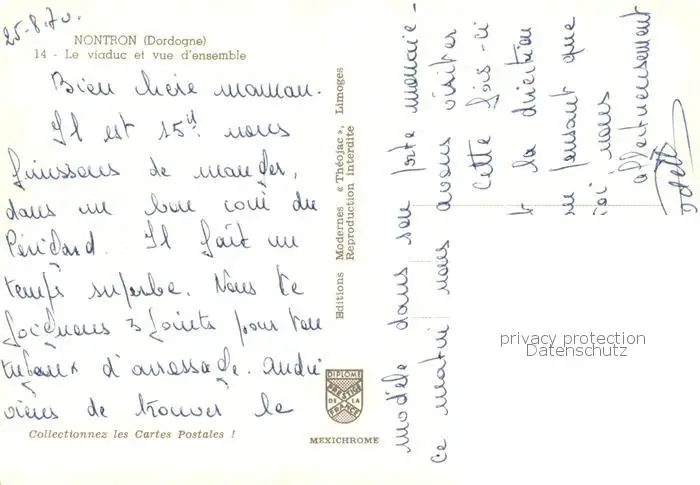 25-8.70.
NONTRON (Dordogne)
14 - Le viaduc et vue d'ensemble
Bien chère maman.
Il est 15H nous
finissons de manger,
dans un bon coin du
Périgord. Il fait un
temps superbe. Nous te
joignons 3 joints pour ton
tuyaux d'arrosage. André
viens de trouver le
Collectionnez les Cartes Postales !
Editions Modernes « Théojac », Limoges
Reproduction Interdite
DIPLOME
PRESTIGE
DE LA
FRANCE
MEXICHROME
modèle dans son porte monaie-
ce matin nous avons visiter
cette fois-ci
la direction
en pensant que
nous
affectueusement
privacy protection
Datenschutz